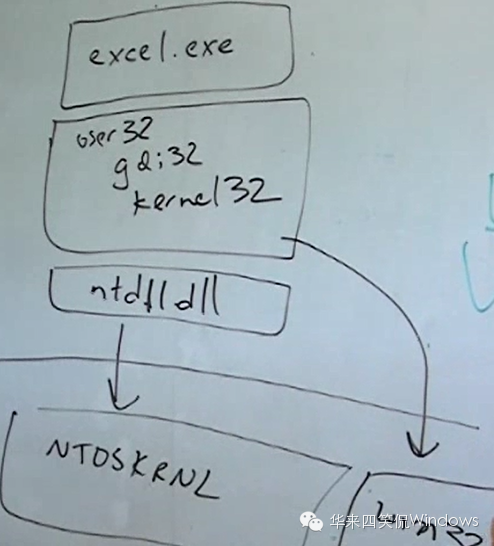 excel.exe
user32
gdi32
kernel32
ntdll dll
NTOSKRNL
华来四笑侃Windows